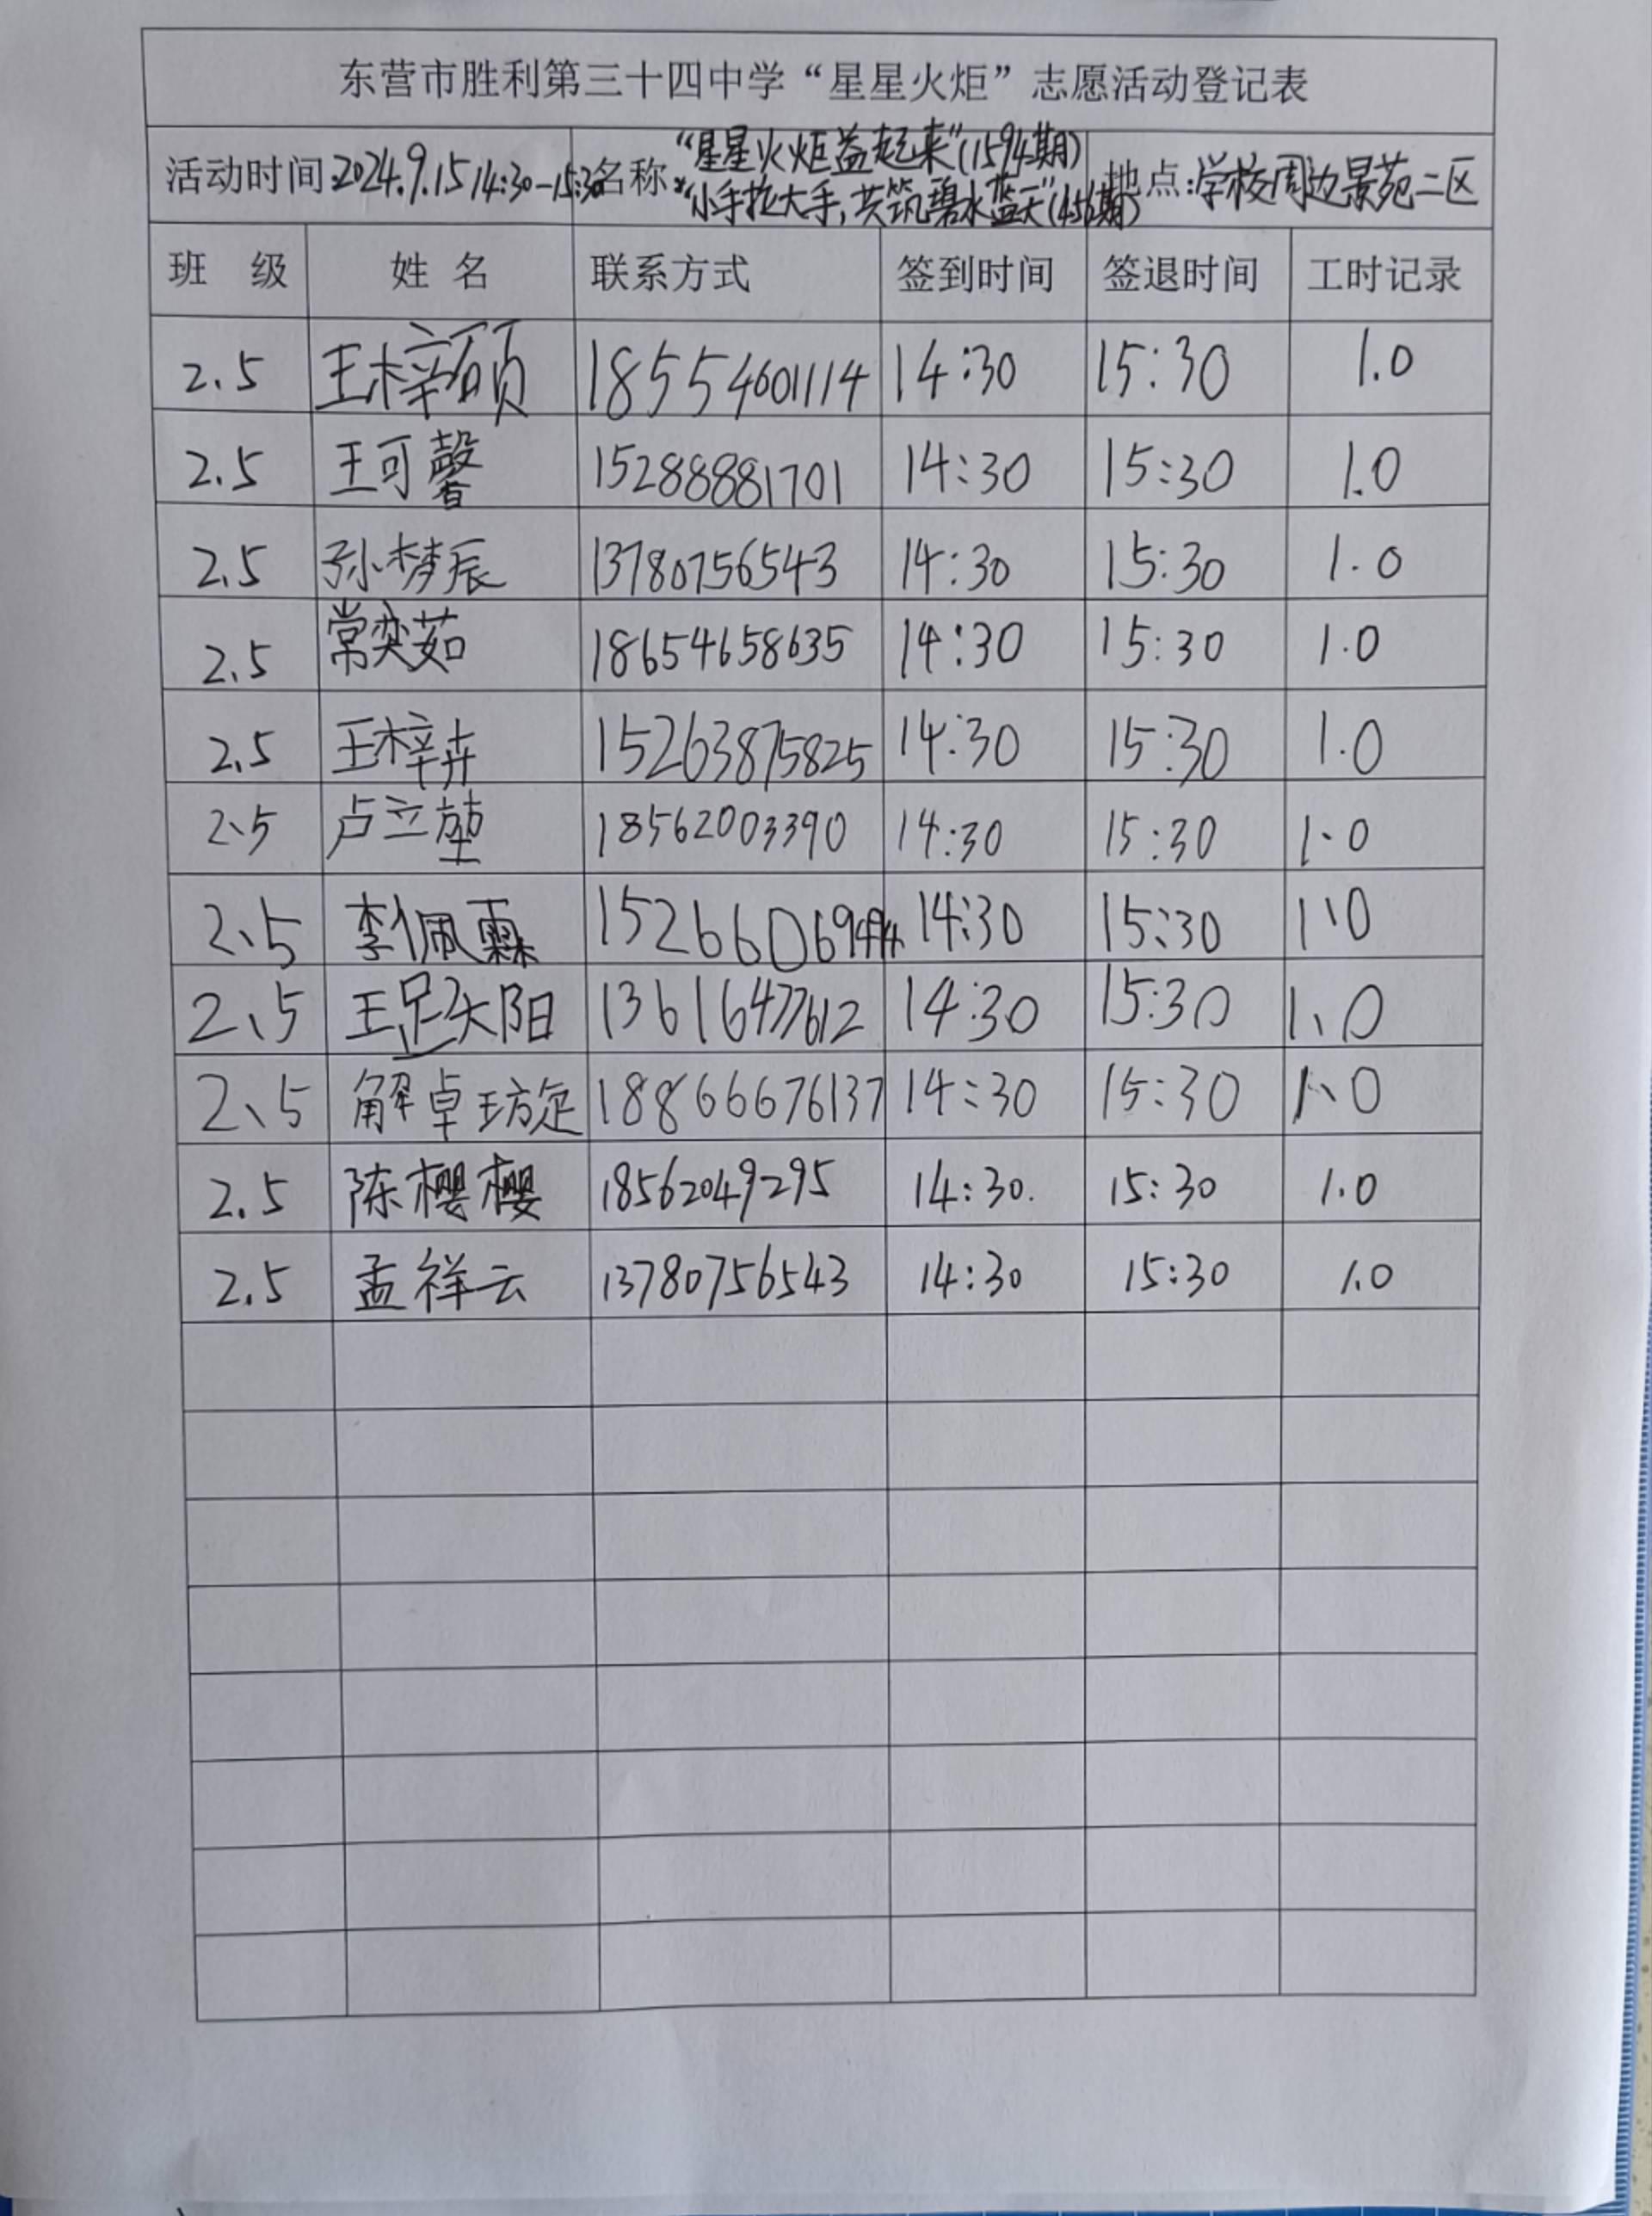 东营市胜利第三十四中学“星星火炬”志愿活动登记表
活动时间:2024.9.15 14:30-15:30 名称:“星星火炬益起来”(1594期) 地点:学校周边景苑二区
“小手拉大手,共筑碧水蓝天”(456期)
班 级 姓 名 联系方式 签到时间 签退时间 工时记录
2.5 王梓硕 18554601114 14:30 15:30 1.0
2.5 王可馨 15288881701 14:30 15:30 1.0
2.5 孙梦辰 13780756543 14:30 15:30 1.0
2.5 常奕茹 18654658635 14:30 15:30 1.0
2.5 王梓卉 15263875825 14:30 15:30 1.0
2.5 卢立堃 18562003390 14:30 15:30 1.0
2.5 李佩霖 14:30 15:30 1.0
2.5 13616477612 14:30 15:30 1.0
2.5 解卓 18866676137 14:30 15:30 1.0
2.5 陈樱樱 18562049295 14:30 15:30 1.0
2.5 孟祥云 13780756543 14:30 15:30 1.0